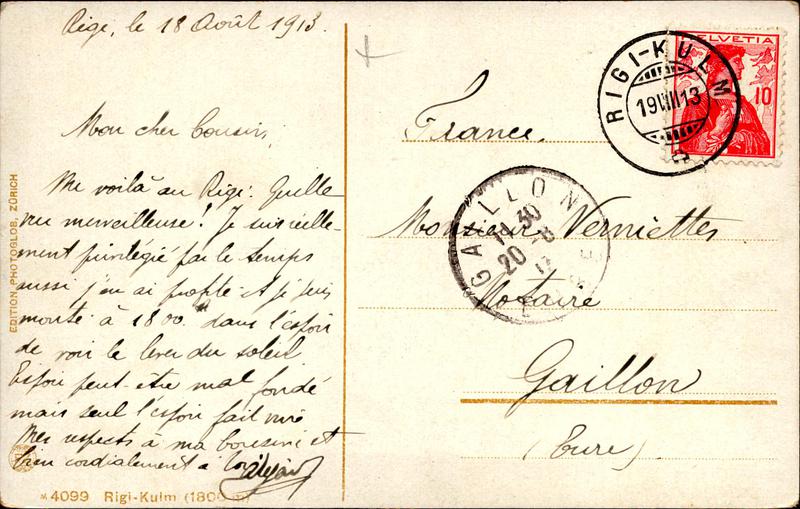 Rigi, le 18 Août 1913.
Mon cher Cousin,
Me voilà au Rigi. Quelle
vue merveilleuse! Je suis
ment privilégié par le temps
aussi j'en ai profité et je suis
monté à 1800 m dans l'espoir
de voir le lever du soleil
Espoir peut-être mal fondé
mais seul l'espoir fait vivre
Mes respects à ma cousine et
bien cordialement à toi
EDITION PHOTOGLOB, ZÜRICH
4099 Rigi-Kulm (1800 m)
HELVETIA
10
RIGI-KULM
19 VIII 13
France
GAILLON
30
20 -8
13
EURE
Monsieur Verniettes
Notaire
Gaillon
(Eure)